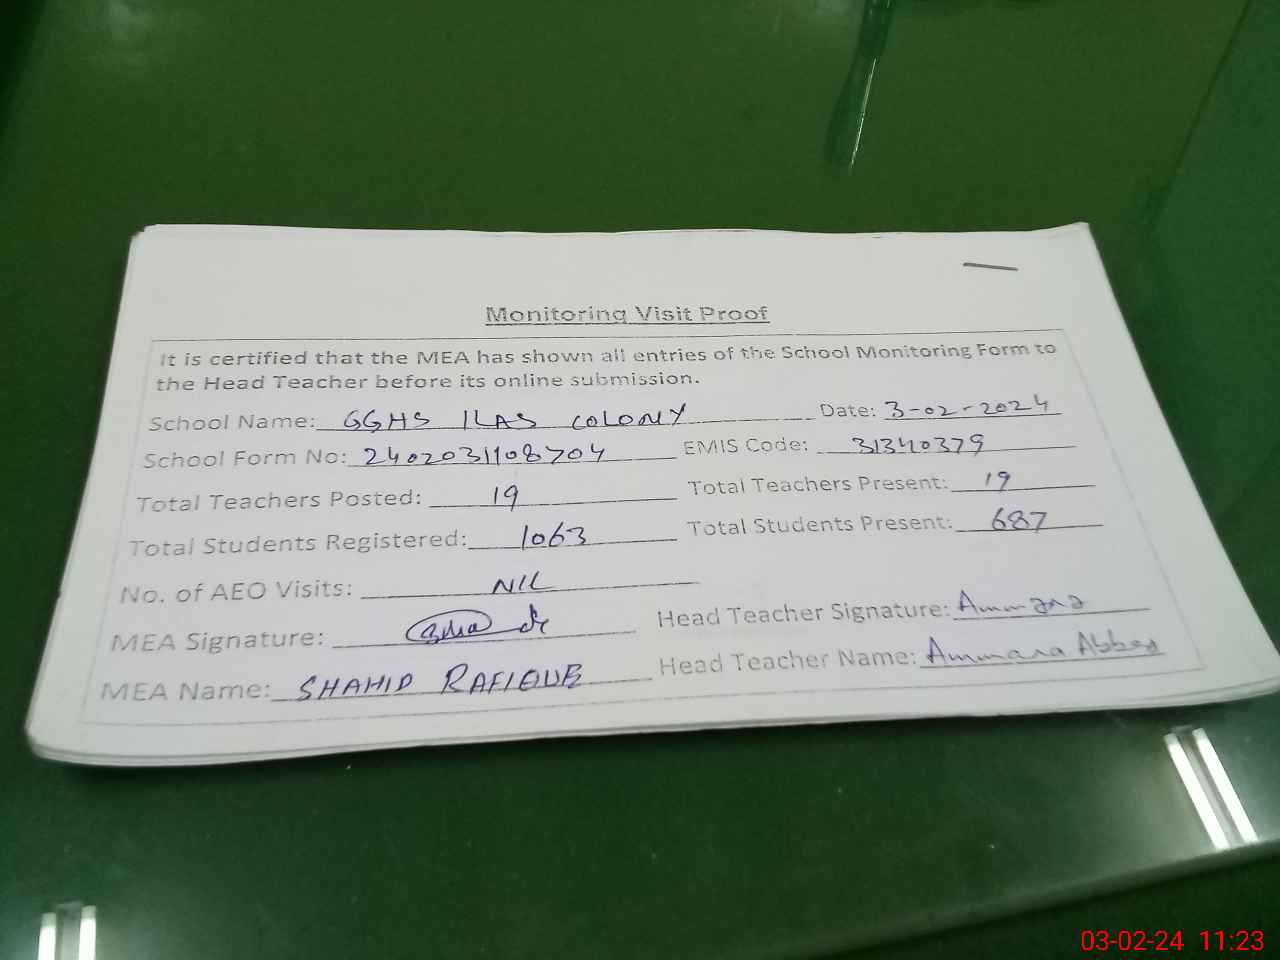 Monitoring Visit Proof
It is certified that the MEA has shown all entries of the School Monitoring Form to
the Head Teacher before its online submission.
School Name: GGHS ILAS COLONY Date: 3-02-2024
School Form No: 2402031108704 EMIS Code: 31340379
Total Teachers Posted: 19 Total Teachers Present: 19
Total Students Registered: 1063 Total Students Present: 687
No. of AEO Visits: NIL
MEA Signature: Head Teacher Signature: Ammara
MEA Name: SHAHID RAFIQUE Head Teacher Name: Ammara Abbas
03-02-24 11:23